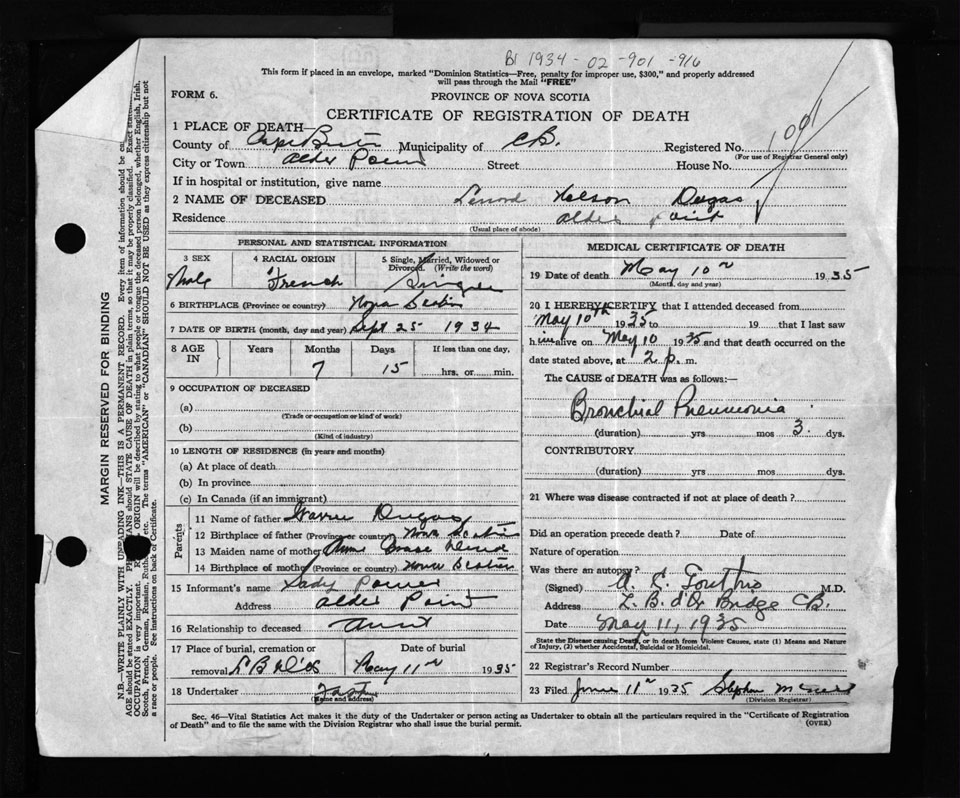 B1 1934 - 02 - 901 - 916
This form if placed in an envelope, marked "Dominion Statistics—Free, penalty for improper use, $300," and properly addressed
will pass through the Mail "FREE"
FORM 6.
PROVINCE OF NOVA SCOTIA
CERTIFICATE OF REGISTRATION OF DEATH
1 PLACE OF DEATH—
County of Cape Breton Municipality of C.B. Registered No. 1001
(For use of Registrar General only)
City or Town Alder Point Street House No.
If in hospital or institution, give name
2 NAME OF DECEASED Nelson Dugas
Residence Alder Point
(Usual place of abode)
PERSONAL AND STATISTICAL INFORMATION
3 SEX Male
4 RACIAL ORIGIN French
5 Single, Married, Widowed or Divorced (Write the word) Single
6 BIRTHPLACE (Province or country) Nova Scotia
7 DATE OF BIRTH (month, day and year) Sept 25 1934
8 AGE IN Years Months Days If less than one day,
7 15 hrs. or min.
9 OCCUPATION OF DECEASED
(a)
(Trade or occupation or kind of work)
(b)
(Kind of industry)
10 LENGTH OF RESIDENCE (in years and months)
(a) At place of death
(b) In province
(c) In Canada (if an immigrant)
Parents
11 Name of father Warren Dugas
12 Birthplace of father (Province or country) Nova Scotia
13 Maiden name of mother Anna
14 Birthplace of mother (Province or country) Nova Scotia
15 Informant's name Sady Power
Address Alder Point
16 Relationship to deceased Aunt
17 Place of burial, cremation or removal
Date of burial
May 11th 1935
18 Undertaker
(Name and address)
MEDICAL CERTIFICATE OF DEATH
19 Date of death May 10th 1935
(Month, day and year)
20 I HEREBY CERTIFY that I attended deceased from
May 10th 1935 to 19 that I last saw
him alive on May 10 1935 and that death occurred on the
date stated above, at 2 p. m.
The CAUSE of DEATH was as follows:—
Bronchial Pneumonia
(duration) yrs mos 3 dys.
CONTRIBUTORY
(duration) yrs mos dys.
21 Where was disease contracted if not at place of death?
Did an operation precede death? Date of
Nature of operation
Was there an autopsy?
(Signed) M.D.
Address Bridge CB.
Date May 11, 1935
State the Disease causing Death, or in death from Violent Causes, state (1) Means and Nature
of Injury, (2) whether Accidental, Suicidal or Homicidal.
22 Registrar's Record Number
23 Filed June 11th 1935 Stephen
(Division Registrar)
Sec. 46—Vital Statistics Act makes it the duty of the Undertaker or person acting as Undertaker to obtain all the particulars required in the "Certificate of Registration
of Death" and to file the same with the Division Registrar who shall issue the burial permit.
(OVER)
MARGIN RESERVED FOR BINDING
N.B.—WRITE PLAINLY WITH UNFADING INK—THIS IS A PERMANENT RECORD. Every item of information should be
AGE should be stated EXACTLY. should STATE CAUSE OF DEATH in plain terms, so that it may be properly classified. Exact
OCCUPATION is very important. ORIGIN will be described by stating to what people or tongue the deceased person belonged, whether English, Irish,
Scotch, French, German, Russian, etc. The terms "AMERICAN" or "CANADIAN" SHOULD NOT BE USED as they express citizenship but not
a race or people. See instructions on back of Certificate.